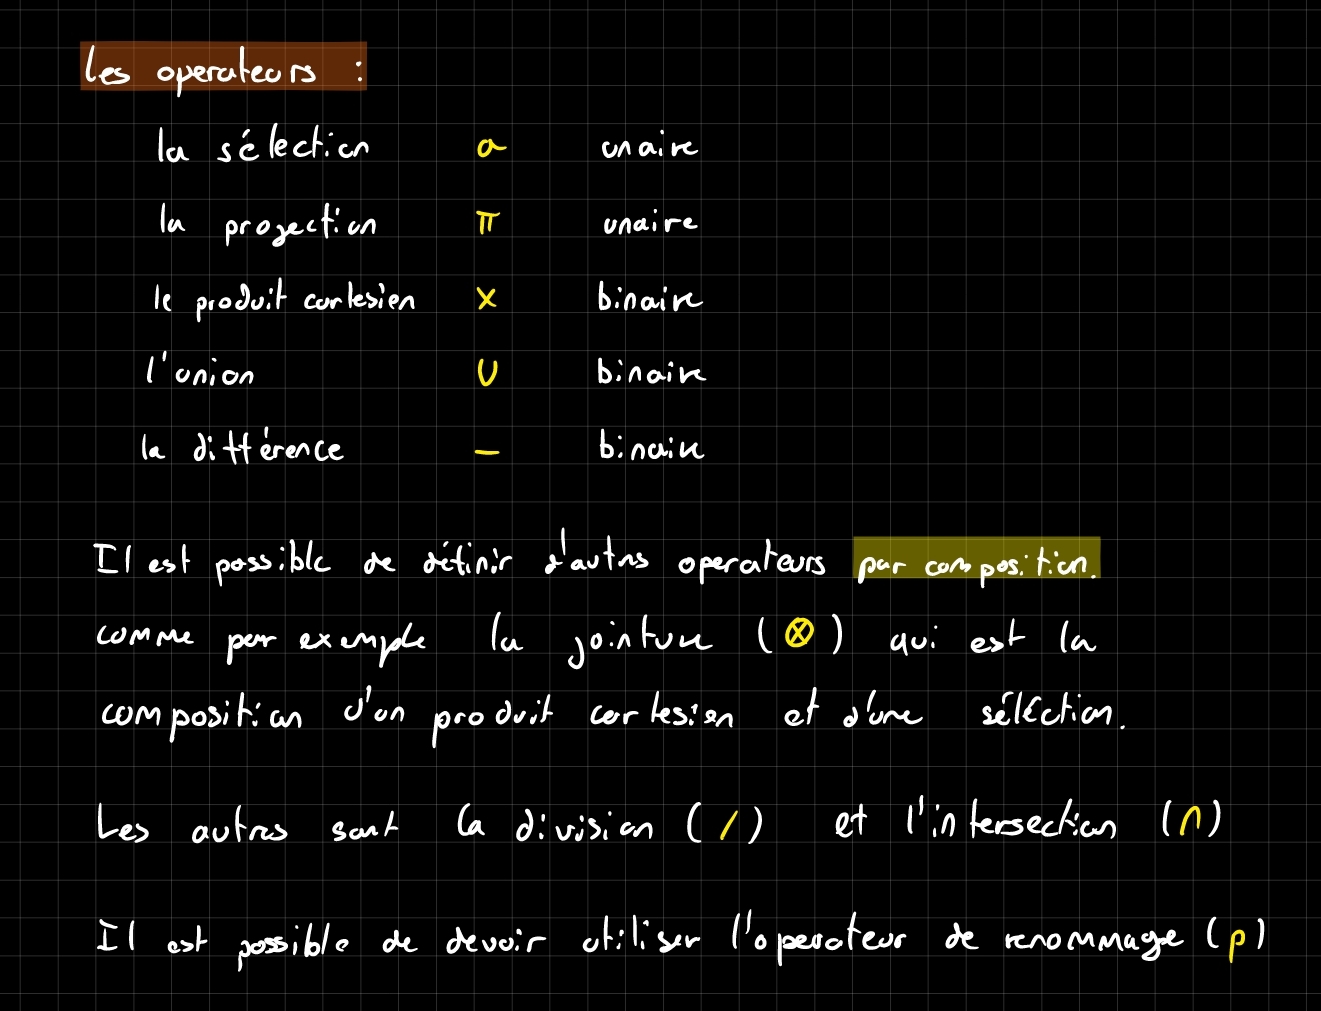 Les operateurs :
la sélection σ unaire
la projection π unaire
le produit cartesien × binaire
l'union ∪ binaire
la différence − binaire
Il est possible de définir d'autres operateurs par composition.
comme par exemple la jointure (⊗) qui est la
composition d'un produit cartesien et d'une séléction.
Les autres sont la division (/) et l'intersection (∩)
Il est possible de devoir utiliser l'operateur de renommage (ρ)